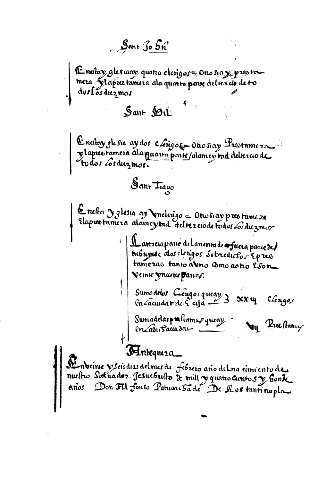 Sant Jo
En esta yglesia ay quatro clerigos = Otrosi ay prestamera
y la prestamera a la quarta parte del tercio de to
dos los diezmos
Sant Gil
En esta yglesia ay dos clerigos = Otrosi ay Prestamera
y la prestamera a la quarta parte / a la meytad del tercio de
todos los diezmos.
Sant Tiago
En esta yglesia ay un clerigo = Otrosi ay prestamera
e la prestamera a la meytad del tercio de todos los diezmos
La tercia parte del
dos clerigos sobredichos E pres
tameras tanto a uno como a otro E son
veinte y nueve partes.
Suma de los Clerigos que ay
en la ciudad de Ecija } xxij Clerigos
Suma de las prestameras que ay
en la dicha ciudad vij Prestameras
Antequera
En veinte y seis dias del mes de febrero año del nacimiento de
nuestro Salvador Jesuchristo de mill y quatrocientos y
años Don Alfonso Patriarcha de Constantinopla